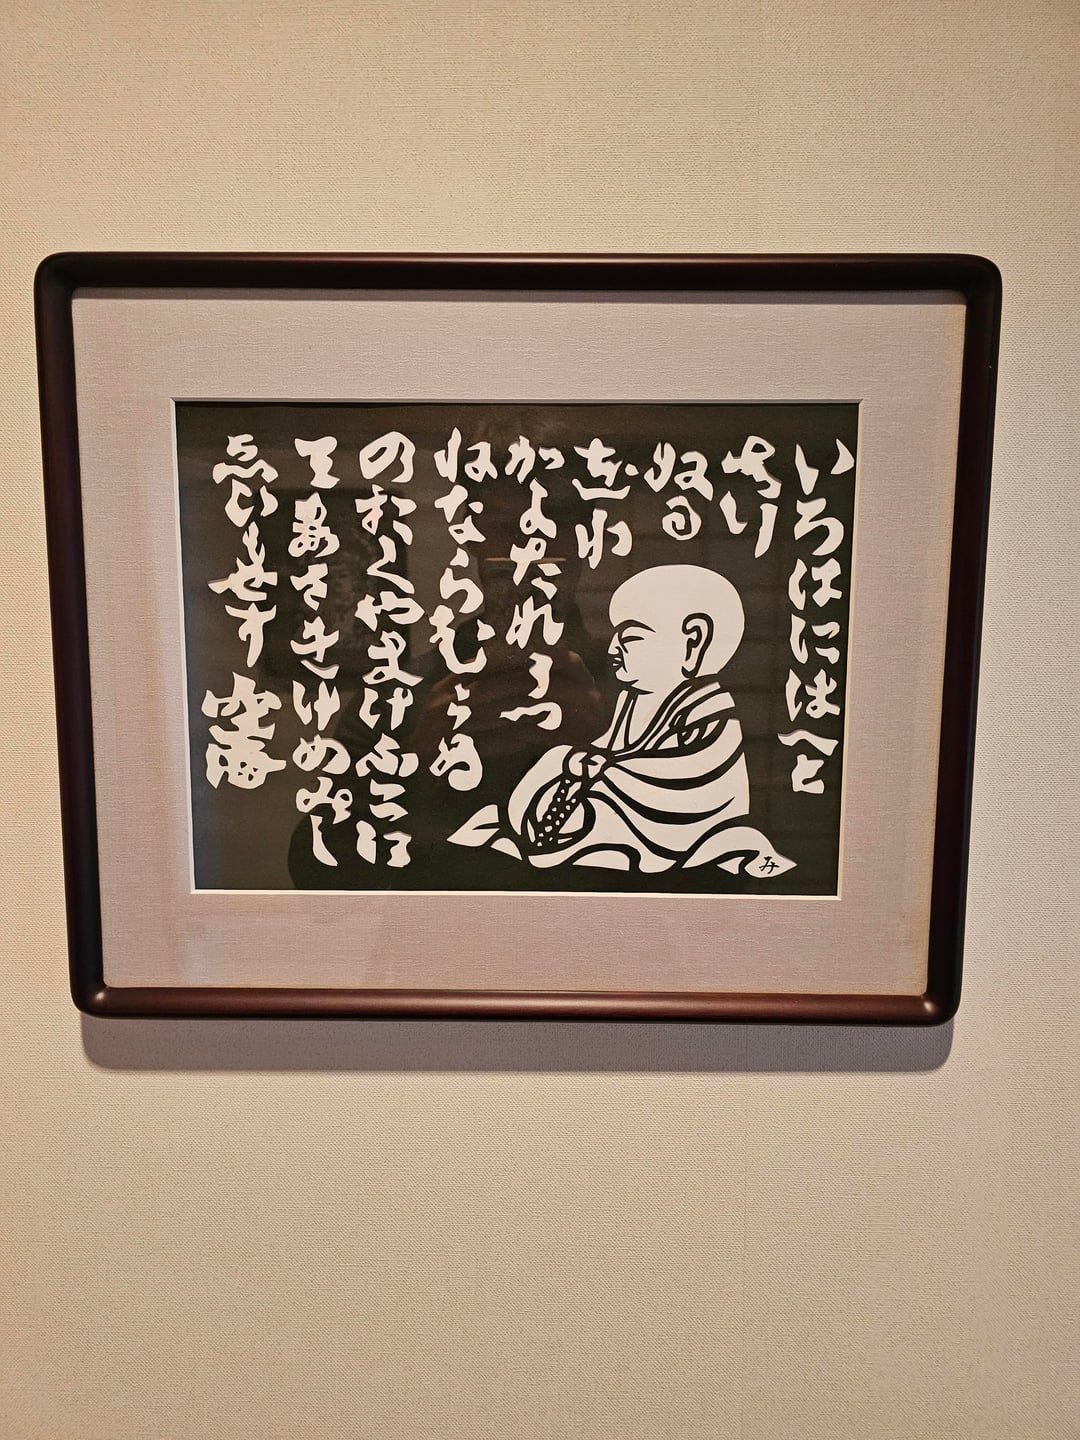 いろはにほへと
ちり
ぬる
をわ
かよたれそつ
ねならむうゐ
のおくやまけふこえ
てあさきゆめみし
ゑひもせす 空海
み